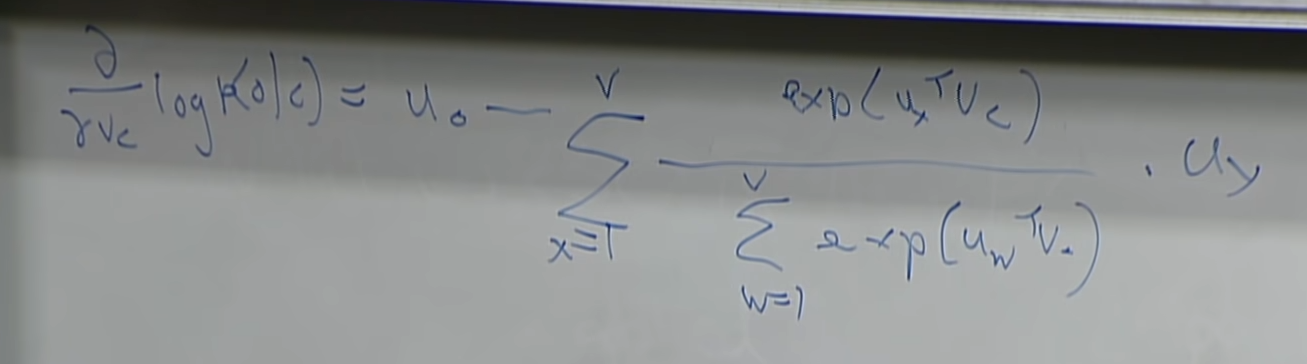 ∂/∂v_c log p(o|c) = u_o − ∑_{x=1}^{V} exp(u_x^T v_c) / ∑_{w=1}^{V} exp(u_w^T v_c) · u_x